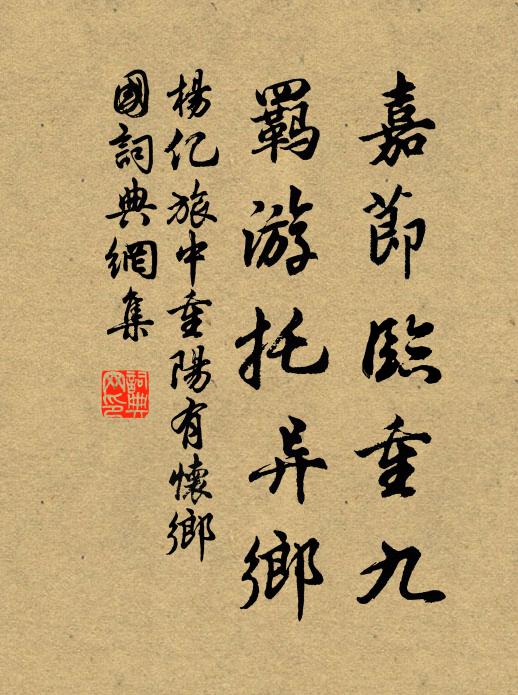 嘉節臨重九
羇游托异鄉
楊亿旅中重陽有懷鄉
國詞典網集
詞典
网印